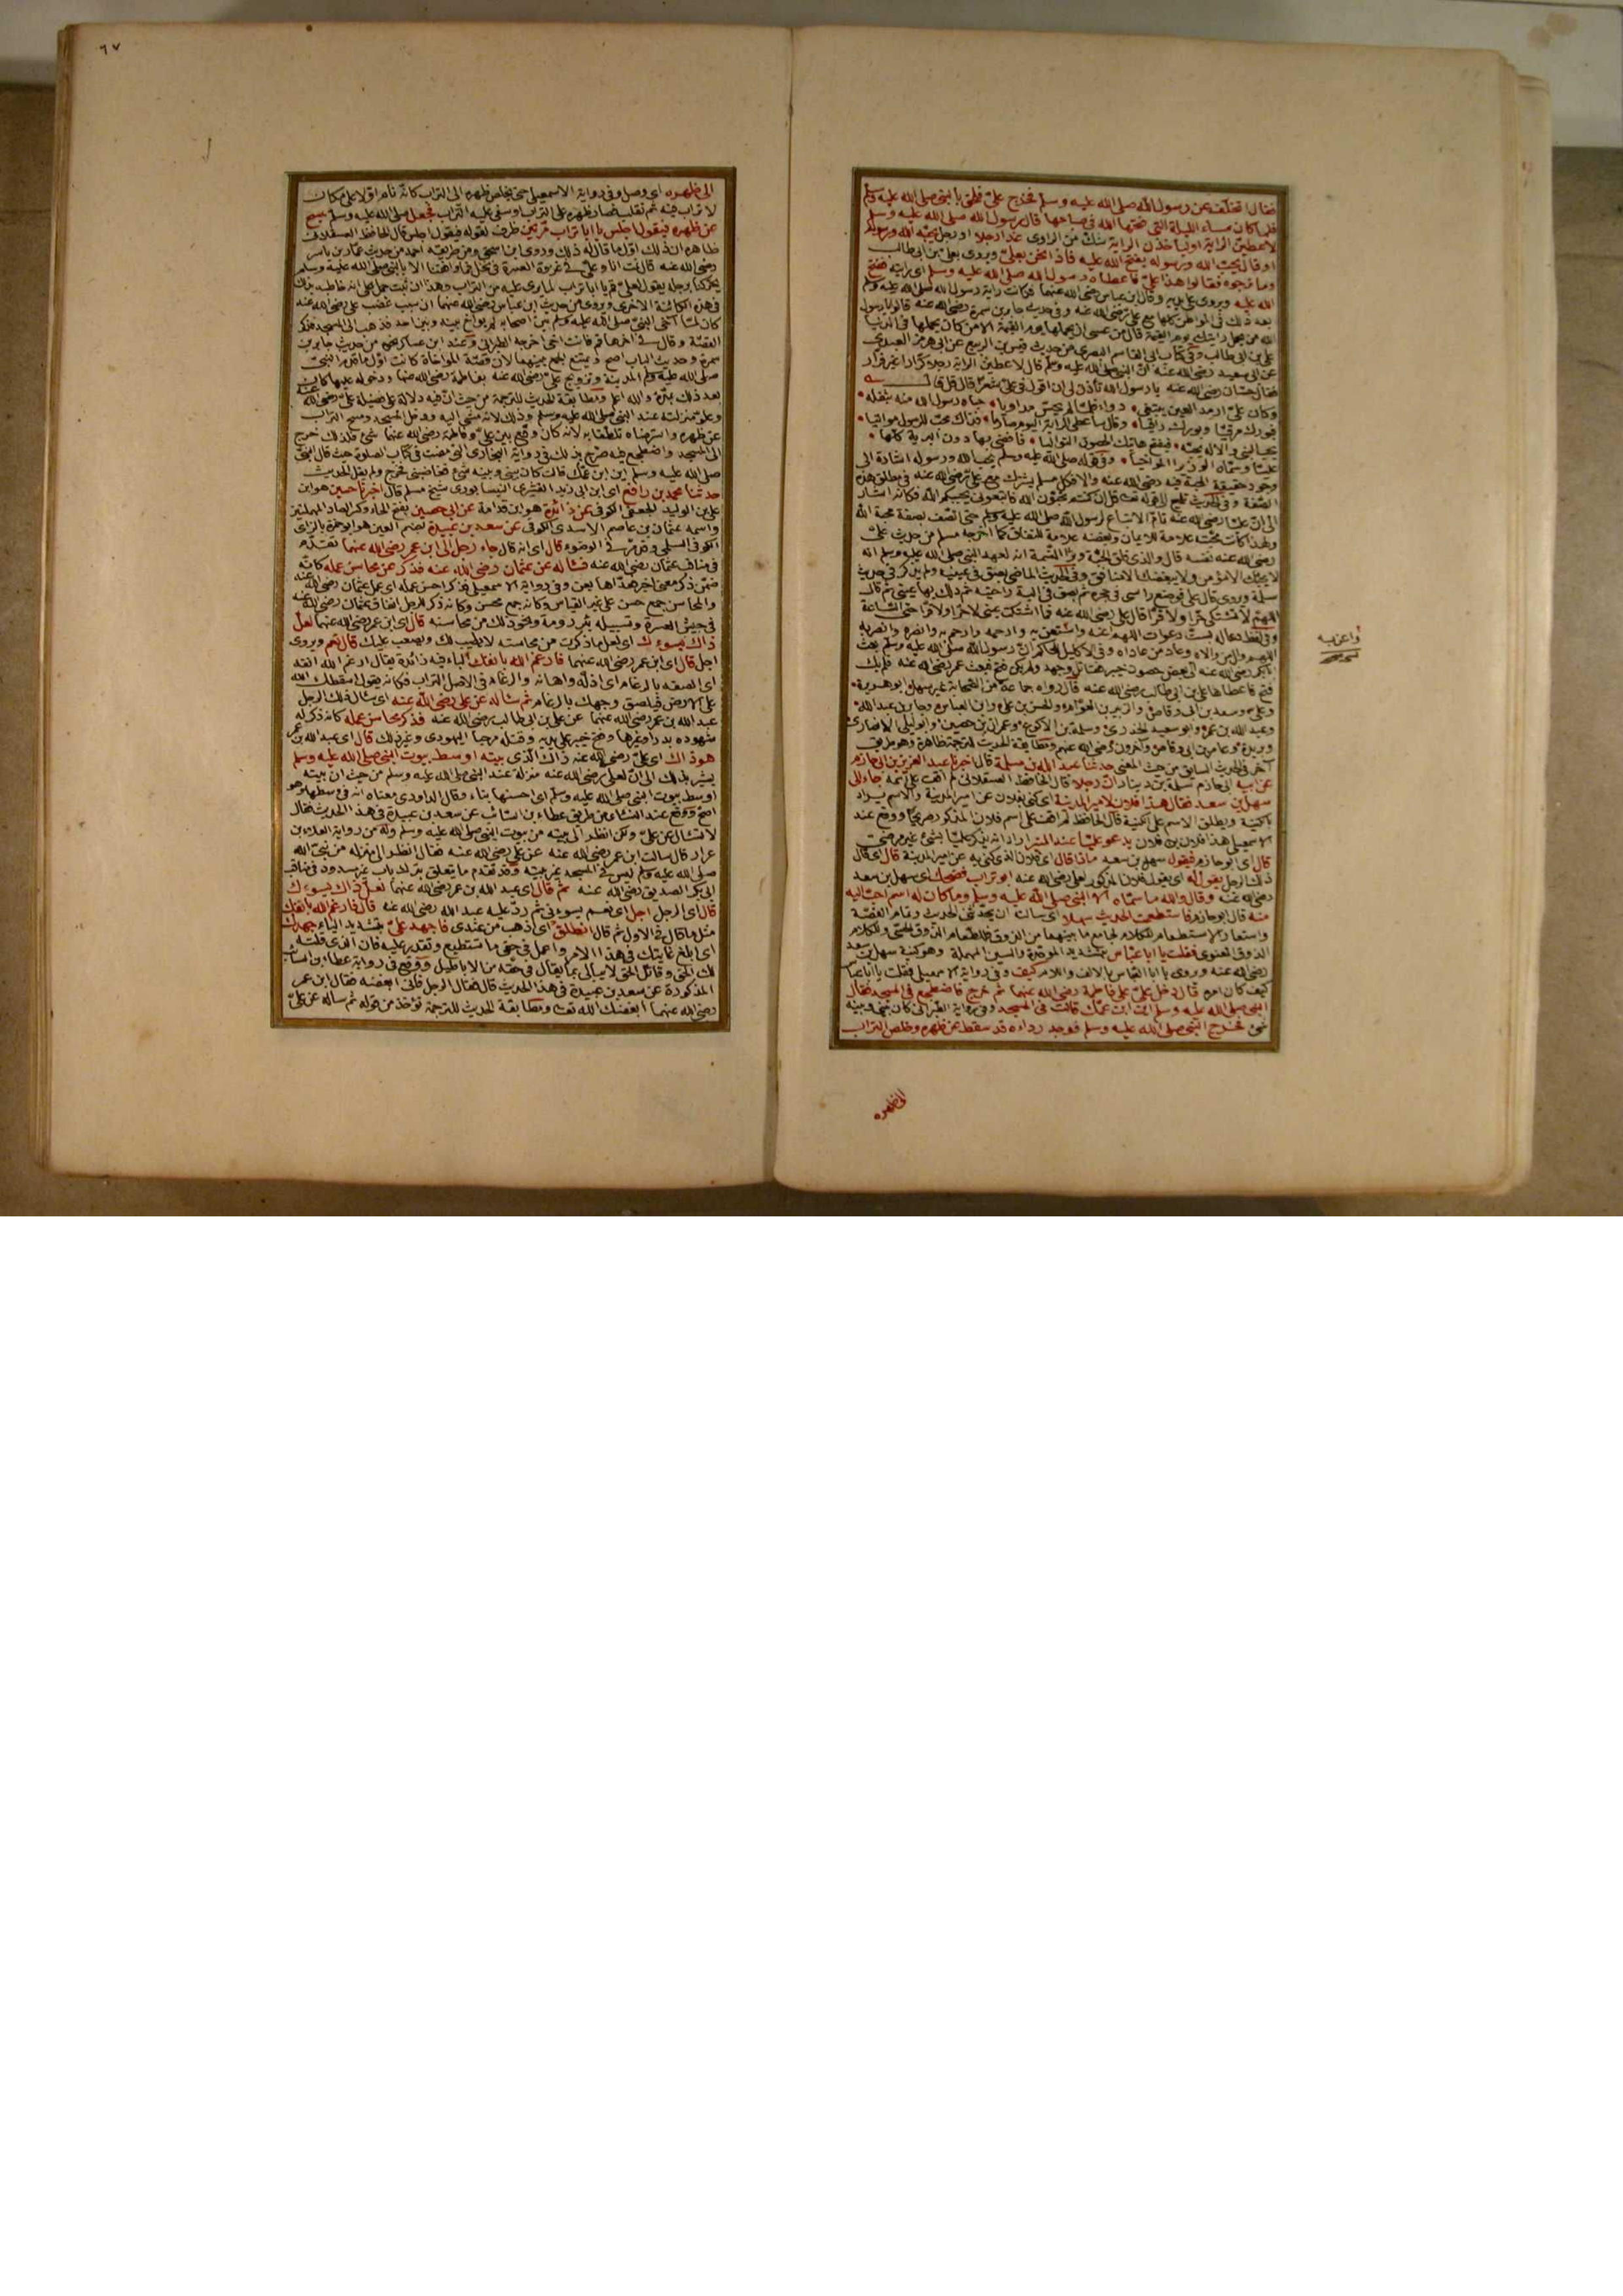 فقال اتخلف عن رسول الله صلى الله عليه وسلم فخرج علي فلحق بالنبي صلى الله عليه وسلم
فلما كان مساء الليلة التي فتحها الله في صباحها قال رسول الله صلى الله عليه وسلم
لاعطين الراية اوليأخذن الراية شك من الراوي غدا رجلا او رجل يحبه الله ورسوله
او قال يحب الله ورسوله يفتح الله عليه فاذا نحن بعلي ويروى بعلي بن ابي طالب
وما نرجوه فقالوا هذا علي فاعطاه رسول الله صلى الله عليه وسلم اي رايته ففتح
الله عليه ويروى على يديه وقال ابن عباس رضي الله عنهما فكانت راية رسول الله صلى الله عليه وسلم
بعد ذلك في المواطن كلها مع علي رضي الله عنه وفي حديث جابر بن سمرة رضي الله عنه قالوا يا رسول
الله من يحمل رايتك يوم القيمة قال من عسى ان يحملها يوم القيمة الا من كان يحملها في الدنيا
علي بن ابي طالب وفي كتاب ابي القاسم البصري من حديث قيس بن الربيع عن ابي هرمز العبدي
عن ابي سعيد رضي الله عنه ان النبي صلى الله عليه وسلم قال لاعطين الراية رجلا كرارا غير فرار
فقال حسان رضي الله عنه يا رسول الله تأذن لي ان اقول في علي شعرا قال قل قال
وكان علي ارمد العين يبتغي • دواء فلما لم يحس مداويا • حباه رسول الله منه بتفله •
فبورك مرقيا وبورك راقيا • وقال ساعطي الراية اليوم صارما • فذاك محب للرسول مواتيا •
يحب النبي والاله يحبه • فيفتح هاتيك الحصون التواليا • فاقضى بها دون البرية كلها •
عليا وسماه الوزير المواخيا • وفي قوله صلى الله عليه وسلم يحب الله ورسوله اشارة الى
وجود حقيقة المحبة فيه رضي الله عنه والا فكل مسلم يشترك مع علي رضي الله عنه في مطلق هذه
الصفة وفي الحديث تلميح الى قوله تعالى قل ان كنتم تحبون الله فاتبعوني يحببكم الله فكانه اشار
الى ان عليا رضي الله عنه تام الاتباع لرسول الله صلى الله عليه وسلم حتى اتصف بصفة محبة الله
ولهذا كانت محبته علامة للايمان وبغضه علامة للنفاق كما اخرجه مسلم من حديث علي
رضي الله عنه نفسه قال والذي فلق الحبة وبرأ النسمة انه لعهد النبي صلى الله عليه وسلم انه
لا يحبك الا مؤمن ولا يبغضك الا منافق وفي الحديث الماضي بصق في عينيه ولم يذكر في حديث
سلمة وروي قال علي فوضع راسي في حجره ثم بصق في الية راحته ثم دلك بها عيني ثم قال
اللهم لا تشتكي حرا ولا قرا قال علي رضي الله عنه فما اشتكت عيني لا حرا ولا قرا حتى الساعة
وفي لفظ دعا له بست دعوات اللهم اعنه واستعن به وارحمه وارحم به وانصره وانصر به
اللهم وال من والاه وعاد من عاداه وفي الاكليل للحاكم ان رسول الله صلى الله عليه وسلم بعث
ابا بكر رضي الله عنه الى بعض حصون خيبر فقاتل وجهد ولم يكن فتح فبعث عمر رضي الله عنه فلم يك
فتح فاعطاها علي بن ابي طالب رضي الله عنه قال رواه جماعة من الصحابة غير سهل ابو هريرة •
وعلي وسعد بن ابي وقاص والزبير بن العوام والحسن بن علي وابن العباس وجابر بن عبد الله
وعبد الله بن عمر وابو سعيد الخدري وسلمة بن الاكوع وعمران بن حصين وابو ليلى الانصاري
وبريدة وعامر بن ابي وقاص وآخرون رضي الله عنهم ومطابقة الحديث للترجمة ظاهرة وهو طريق
آخر في الحديث السابق من حيث المعنى حدثنا عبد الله بن مسلمة قال اخبرنا عبد العزيز بن ابي حازم
عن ابيه ابي حازم سلمة بن دينار ان رجلا قال الحافظ العسقلاني لم اقف على اسمه جاء الى
سهل بن سعد فقال هذا فلان لامير المدينة اي كنى بفلان عن امير المدينة والاسم يراد
بالكنية ويطلق الاسم على الكنية قال الحافظ لم اقف على اسم فلان المذكور صريحا ووقع عند
الاسمعيلي هذا فلان بن فلان يدعو عليا عند المنبر اراد انه يذكر عليا بشئ غير مرضي
قال اي ابو حازم فيقول سهل بن سعد ماذا قال اي فلان الذي كنى به عن امير المدينة قال اي قال
ذلك الرجل يقول له اي يقول فلان المذكور لعلي رضي الله عنه ابو تراب فضحك اي سهل بن سعد
رضي الله عنه وقال والله ما سماه الا النبي صلى الله عليه وسلم وما كان له اسم احب اليه
منه قال ابو حازم فاستطعمت الحديث سهلا اي سالت ان يحدثني الحديث وتمام القصة
واستعار الاستطعام للكلام لجامع ما بينهما من الذوق فللطعام الذوق الحسي وللكلام
الذوق المعنوي فقلت يا ابا عباس بتشديد الموحدة والسين المهملة وهو كنية سهل بن سعد
رضي الله عنه ويروى يا ابا العباس بالالف واللام كيف وفي رواية الاسمعيلي فقلت يا ابا عباس
كيف كان امره قال دخل علي على فاطمة رضي الله عنهما ثم خرج فاضطجع في المسجد فقال
النبي صلى الله عليه وسلم اين ابن عمك قالت في المسجد وفي رواية الطبراني كان بيني وبينه
شئ فخرج النبي صلى الله عليه وسلم فوجد رداءه قد سقط عن ظهره وخلص التراب
الى ظهره
٦٧
الى ظهره اي وصل وفي رواية الاسمعيلي حتى يخلص ظهره الى التراب كانه نام اولا على مكان
لا تراب فيه ثم تقلب فصار ظهره على التراب او سفي عليه التراب فجعل صلى الله عليه وسلم يمسح
عن ظهره فيقول اجلس يا ابا تراب مرتين ظرف لقوله فيقول اجلس قال الحافظ العسقلاني
ظاهره ان ذلك اول ما قال له ذلك وروى ابن اسحق ومن طريقه احمد من حديث عمار بن ياسر
رضي الله عنه قال نمت انا وعلي في غزوة العسرة في نخل فما افقنا الا بالنبي صلى الله عليه وسلم
يحركنا برجله يقول لعلي قم يا ابا تراب لما يرى عليه من التراب وهذا ان ثبت حمل على انه خاطبه بذلك
في هذه الكائنة الاخرى ويروى من حديث ابن عباس رضي الله عنهما ان سبب غضب علي رضي الله عنه
كان لما آخى النبي صلى الله عليه وسلم بين اصحابه لم يواخ بينه وبين احد فذهب الى المسجد فذكر
القصة وقال في آخرها قم فانت اخي اخرجه الطبراني وعند ابن عساكر نحوه من حديث جابر بن
سمرة وحديث الباب اصح ويمتنع الجمع بينهما لان قصة المواخاة كانت اول ما قدم النبي
صلى الله عليه وسلم المدينة وتزويج علي رضي الله عنه بفاطمة رضي الله عنها ودخوله عليها كان
بعد ذلك بمدة والله اعلم ومطابقة الحديث للترجمة من حيث ان فيه دلالة على فضيلة علي رضي الله عنه
وعلو منزلته عند النبي صلى الله عليه وسلم وذلك لانه مشى اليه ودخل المسجد ومسح التراب
عن ظهره واسترضاه تلطفا به لانه كان وقع بين علي وفاطمة رضي الله عنهما شئ فلذلك خرج
الى المسجد واضطجع فيه صرح بذلك في رواية البخاري التي مضت في كتاب الصلوة حيث قال النبي
صلى الله عليه وسلم اين ابن عمك قالت كان بيني وبينه شئ فغاضبني فخرج ولم يقل الحديث
حدثنا محمد بن رافع اي ابن ابي زيد القشيري النيسابوري شيخ مسلم قال اخبرنا حسين هو ابن
علي بن الوليد الجعفي الكوفي عن زائدة هو ابن قدامة عن ابي حصين بفتح الحاء وكسر الصاد المهملتين
واسمه عثمان بن عاصم الاسدي الكوفي عن سعد بن عبيدة بضم العين هو ابو حمزة بالزاي
الكوفي السلمي وقد مر في الوضوء قال اي انه قال جاء رجل الى ابن عمر رضي الله عنهما تقدم
في مناقب عثمان رضي الله عنه فسأله عن عثمان رضي الله عنه فذكر عن محاسن عمله كانه
ضمن ذكر معنى اخبر فعداها بعن وفي رواية الاسمعيلي فذكر احسن عمله اي عمل عثمان رضي الله عنه
والمحاسن جمع حسن على غير القياس وكانه جمع محسن وكانه ذكر للرجل انفاق عثمان رضي الله عنه
في جيش العسرة وتسبيله بئر رومة ونحو ذلك من محاسنه قال اي ابن عمر رضي الله عنهما لعل
ذاك يسوءك اي لعل ما ذكرت من محاسنه لا يطيب لك ويصعب عليك قال نعم ويروى
اجل قال اي ابن عمر رضي الله عنهما فارغم الله بانفك الباء فيه زائدة يقال ارغم الله انفه
اي الصقه بالرغام اي اذله واهانه والرغام في الاصل التراب فكانه يقول اسقطك الله
على الارض فيلصق وجهك بالرغام ثم سأله عن علي رضي الله عنه اي سأل ذلك الرجل
عبد الله بن عمر رضي الله عنهما عن علي بن ابي طالب رضي الله عنه فذكر محاسن عمله كانه ذكر له
شهوده بدرا وغيرها وفتح خيبر على يديه وقتله مرحبا اليهودي وغير ذلك قال اي عبد الله بن عمر
هو ذاك اي علي رضي الله عنه ذاك الذي بيته اوسط بيوت النبي صلى الله عليه وسلم
يشير بذلك الى ان لعلي رضي الله عنه منزلة عند النبي صلى الله عليه وسلم من حيث ان بيته
اوسط بيوت النبي صلى الله عليه وسلم اي احسنها بناء وقال الداودي معناه انه في وسطها وهو
اصح ووقع عند النسائي من طريق عطاء بن السائب عن سعد بن عبيدة في هذا الحديث فقال
لا تسأل عن علي ولكن انظر الى بيته من بيوت النبي صلى الله عليه وسلم وله من رواية العلاء بن
عرار قال سالت ابن عمر رضي الله عنه عن علي رضي الله عنه فقال انظر الى منزله من نبي الله
صلى الله عليه وسلم ليس في المسجد غير بيته وقد تقدم ما يتعلق بترك باب غير مسدود في مناقب
ابي بكر الصديق رضي الله عنه ثم قال اي عبد الله بن عمر رضي الله عنهما لعل ذاك يسوءك
قال اي الرجل اجل اي نعم يسوءني ثم رد عليه عبد الله رضي الله عنه قال فارغم الله بانفك
مثل ما قال في الاول ثم قال انطلق اي اذهب من عندي فاجهد علي بتشديد الياء جهدك
اي ابلغ غايتك في هذا الامر واعمل في حقي ما تستطيع وتقدر عليه فان الذي قلته
لك الحق وقائل الحق لا يبالي بما يقال في حقه من الاباطيل ووقع في رواية عطاء بن السائب
المذكورة عن سعد بن عبيدة في هذا الحديث قال فقال الرجل فاني ابغضه فقال ابن عمر
رضي الله عنهما ابغضك الله تعالى ومطابقة الحديث للترجمة تؤخذ من قوله ثم سأله عن علي